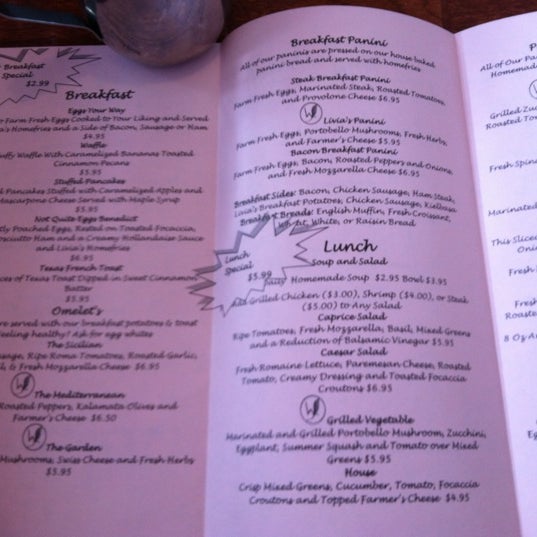 Breakfast
Special
$2.99
Breakfast
Eggs Your Way
Farm Fresh Eggs Cooked to Your Liking and Served
Livia's Homefries and a Side of Bacon, Sausage or Ham
$4.95
Waffle
Waffle With Caramelized Bananas Toasted
Cinnamon Pecans
$5.95
Stuffed Pancakes
Pancakes Stuffed with Caramelized Apples and
Mascarpone Cheese Served with Maple Syrup
$5.95
Not Quite Eggs Benedict
Poached Eggs, Rested on Toasted Focaccia,
Prosciutto Ham and a Creamy Hollandaise Sauce
and Livia's Homefries
$6.95
Texas French Toast
of Texas Toast Dipped in Sweet Cinnamon
Batter
$5.95
Omelet's
are served with our breakfast potatoes & toast
Feeling healthy? Ask for egg whites
The Sicilian
Sausage, Ripe Roma Tomatoes, Roasted Garlic,
& Fresh Mozzarella Cheese $6.95
The Mediterranean
Roasted Peppers, Kalamata Olives and
Farmer's Cheese $6.50
The Garden
Mushrooms, Swiss Cheese and Fresh Herbs
$5.95
Breakfast Panini
All of our paninis are pressed on our house baked
panini bread and served with homefries
Steak Breakfast Panini
Farm Fresh Eggs, Marinated Steak, Roasted Tomatoes,
and Provolone Cheese $6.95
Livia's Panini
Farm Fresh Eggs, Portobello Mushrooms, Fresh Herbs,
and Farmer's Cheese $5.95
Bacon Breakfast Panini
Farm Fresh Eggs, Bacon, Roasted Peppers and Onions,
and Fresh Mozzarella Cheese $6.95
Breakfast Sides: Bacon, Chicken Sausage, Ham Steak,
Livia's Breakfast Potatoes, Chicken Sausage, Kielbasa
Breakfast Breads: English Muffin, Fresh Croissant,
Wheat, White, or Raisin Bread
Lunch
Special
$5.99
Lunch
Soup and Salad
Daily Homemade Soup $2.95 Bowl $3.95
Add Grilled Chicken ($3.00), Shrimp ($4.00), or Steak
($5.00) to Any Salad
Caprice Salad
Ripe Tomatoes, Fresh Mozzarella, Basil, Mixed Greens
and a Reduction of Balsamic Vinegar $5.95
Caesar Salad
Fresh Romaine Lettuce, Parmesean Cheese, Roasted
Tomato, Creamy Dressing and Toasted Focaccia
Croutons $6.95
Grilled Vegetable
Marinated and Grilled Portobello Mushroom, Zucchini,
Eggplant, Summer Squash and Tomato over Mixed
Greens $5.95
House
Crisp Mixed Greens, Cucumber, Tomato, Focaccia
Croutons and Topped Farmer's Cheese $4.95
All of Our
Homemade
Grilled
Roasted
Fresh
Marinated
This
Fresh
Fresh
Roasted
8 Oz
Fresh